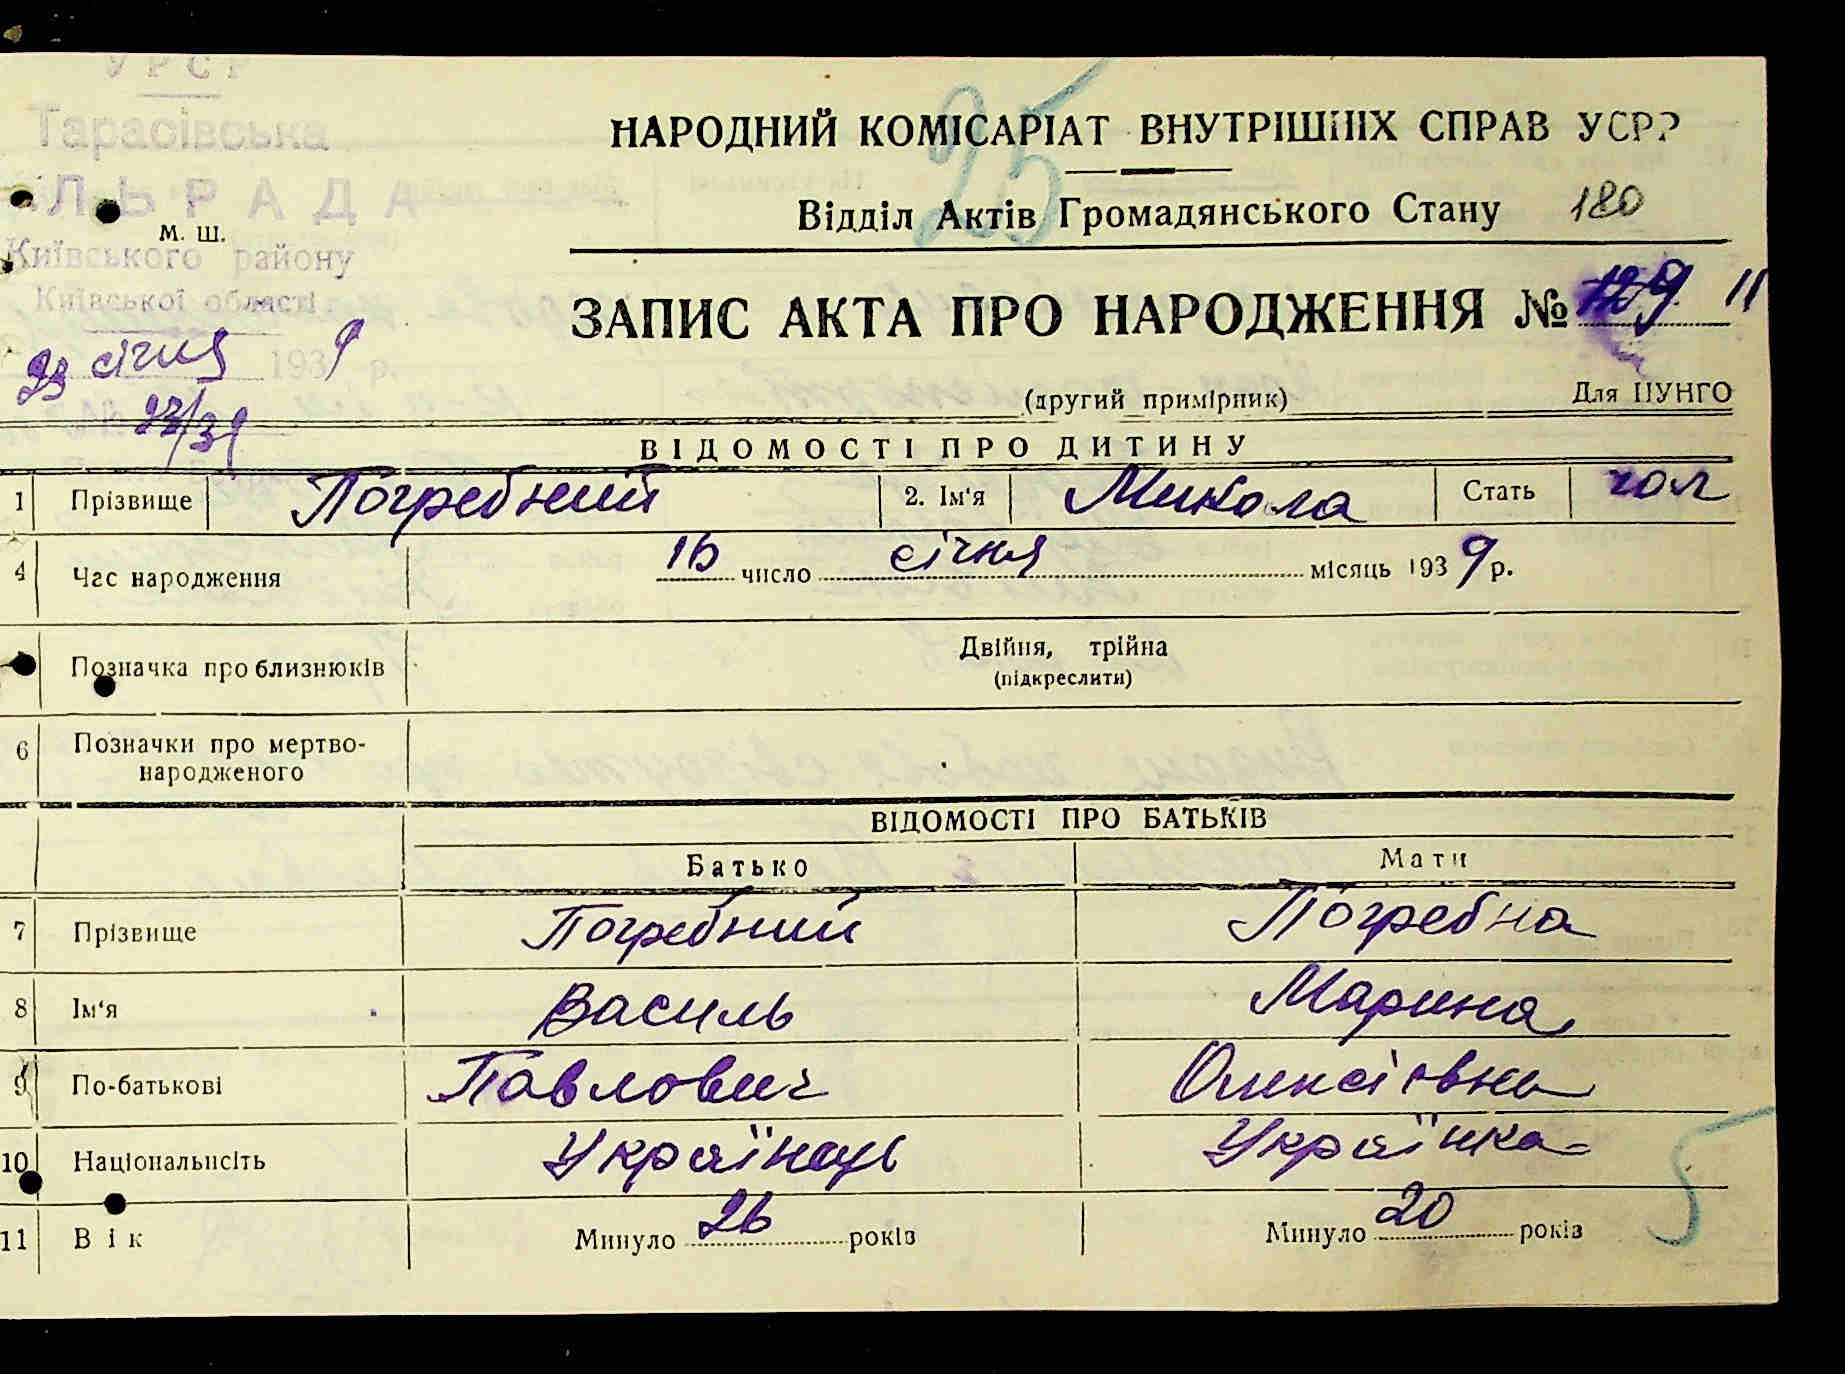 УРСР
Тарасівська
ЛЬРАДА
М. Ш.
Київського району
Київської області
23 січня 1939 р.
№ 23/39
25
НАРОДНИЙ КОМІСАРІАТ ВНУТРІШНІХ СПРАВ УСРР
Відділ Актів Громадянського Стану 180
ЗАПИС АКТА ПРО НАРОДЖЕННЯ № 11
(другий примірник) Для ЦУНГО
ВІДОМОСТІ ПРО ДИТИНУ
1 Прізвище Погребний 2. Ім'я Микола Стать чол
4 Час народження 16 число січня місяць 1939 р.
Позначка про близнюків Двійня, трійна
(підкреслити)
6 Позначки про мертво-
народженого
ВІДОМОСТІ ПРО БАТЬКІВ
Батько Мати
7 Прізвище Погребний Погребна
8 Ім'я Василь Марина
9 По-батькові Павлович Олексіївна
10 Національність Українець Українка
11 Вік Минуло 26 років Минуло 20 років
5